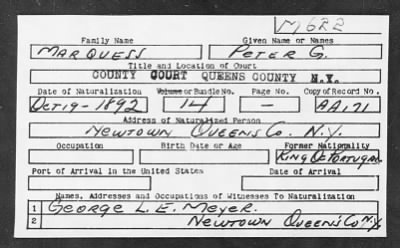 M622
Family Name Given Name or Names
MARQUESS PETER G.
Title and Location of Court
COUNTY COURT QUEENS COUNTY N.Y.
Date of Naturalization Volume or Bundle No. Page No. Copy of Record No.
OCT 19-1892 14 — AA171
Address of Naturalized Person
NEWTOWN QUEENS CO. N.Y.
Occupation Birth Date or Age Former Nationality
KING OF PORTUGAL
Port of Arrival in the United States Date of Arrival
Names, Addresses and Occupations of Witnesses To Naturalization
1 GEORGE L. E. MEYER.
2 NEWTOWN QUEENS CO N.Y.